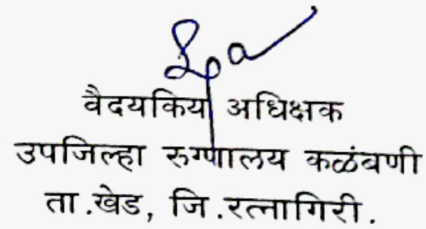 वैदयकिय अधिक्षक
उपजिल्हा रुग्णालय कळंबणी
ता.खेड, जि.रत्नागिरी.